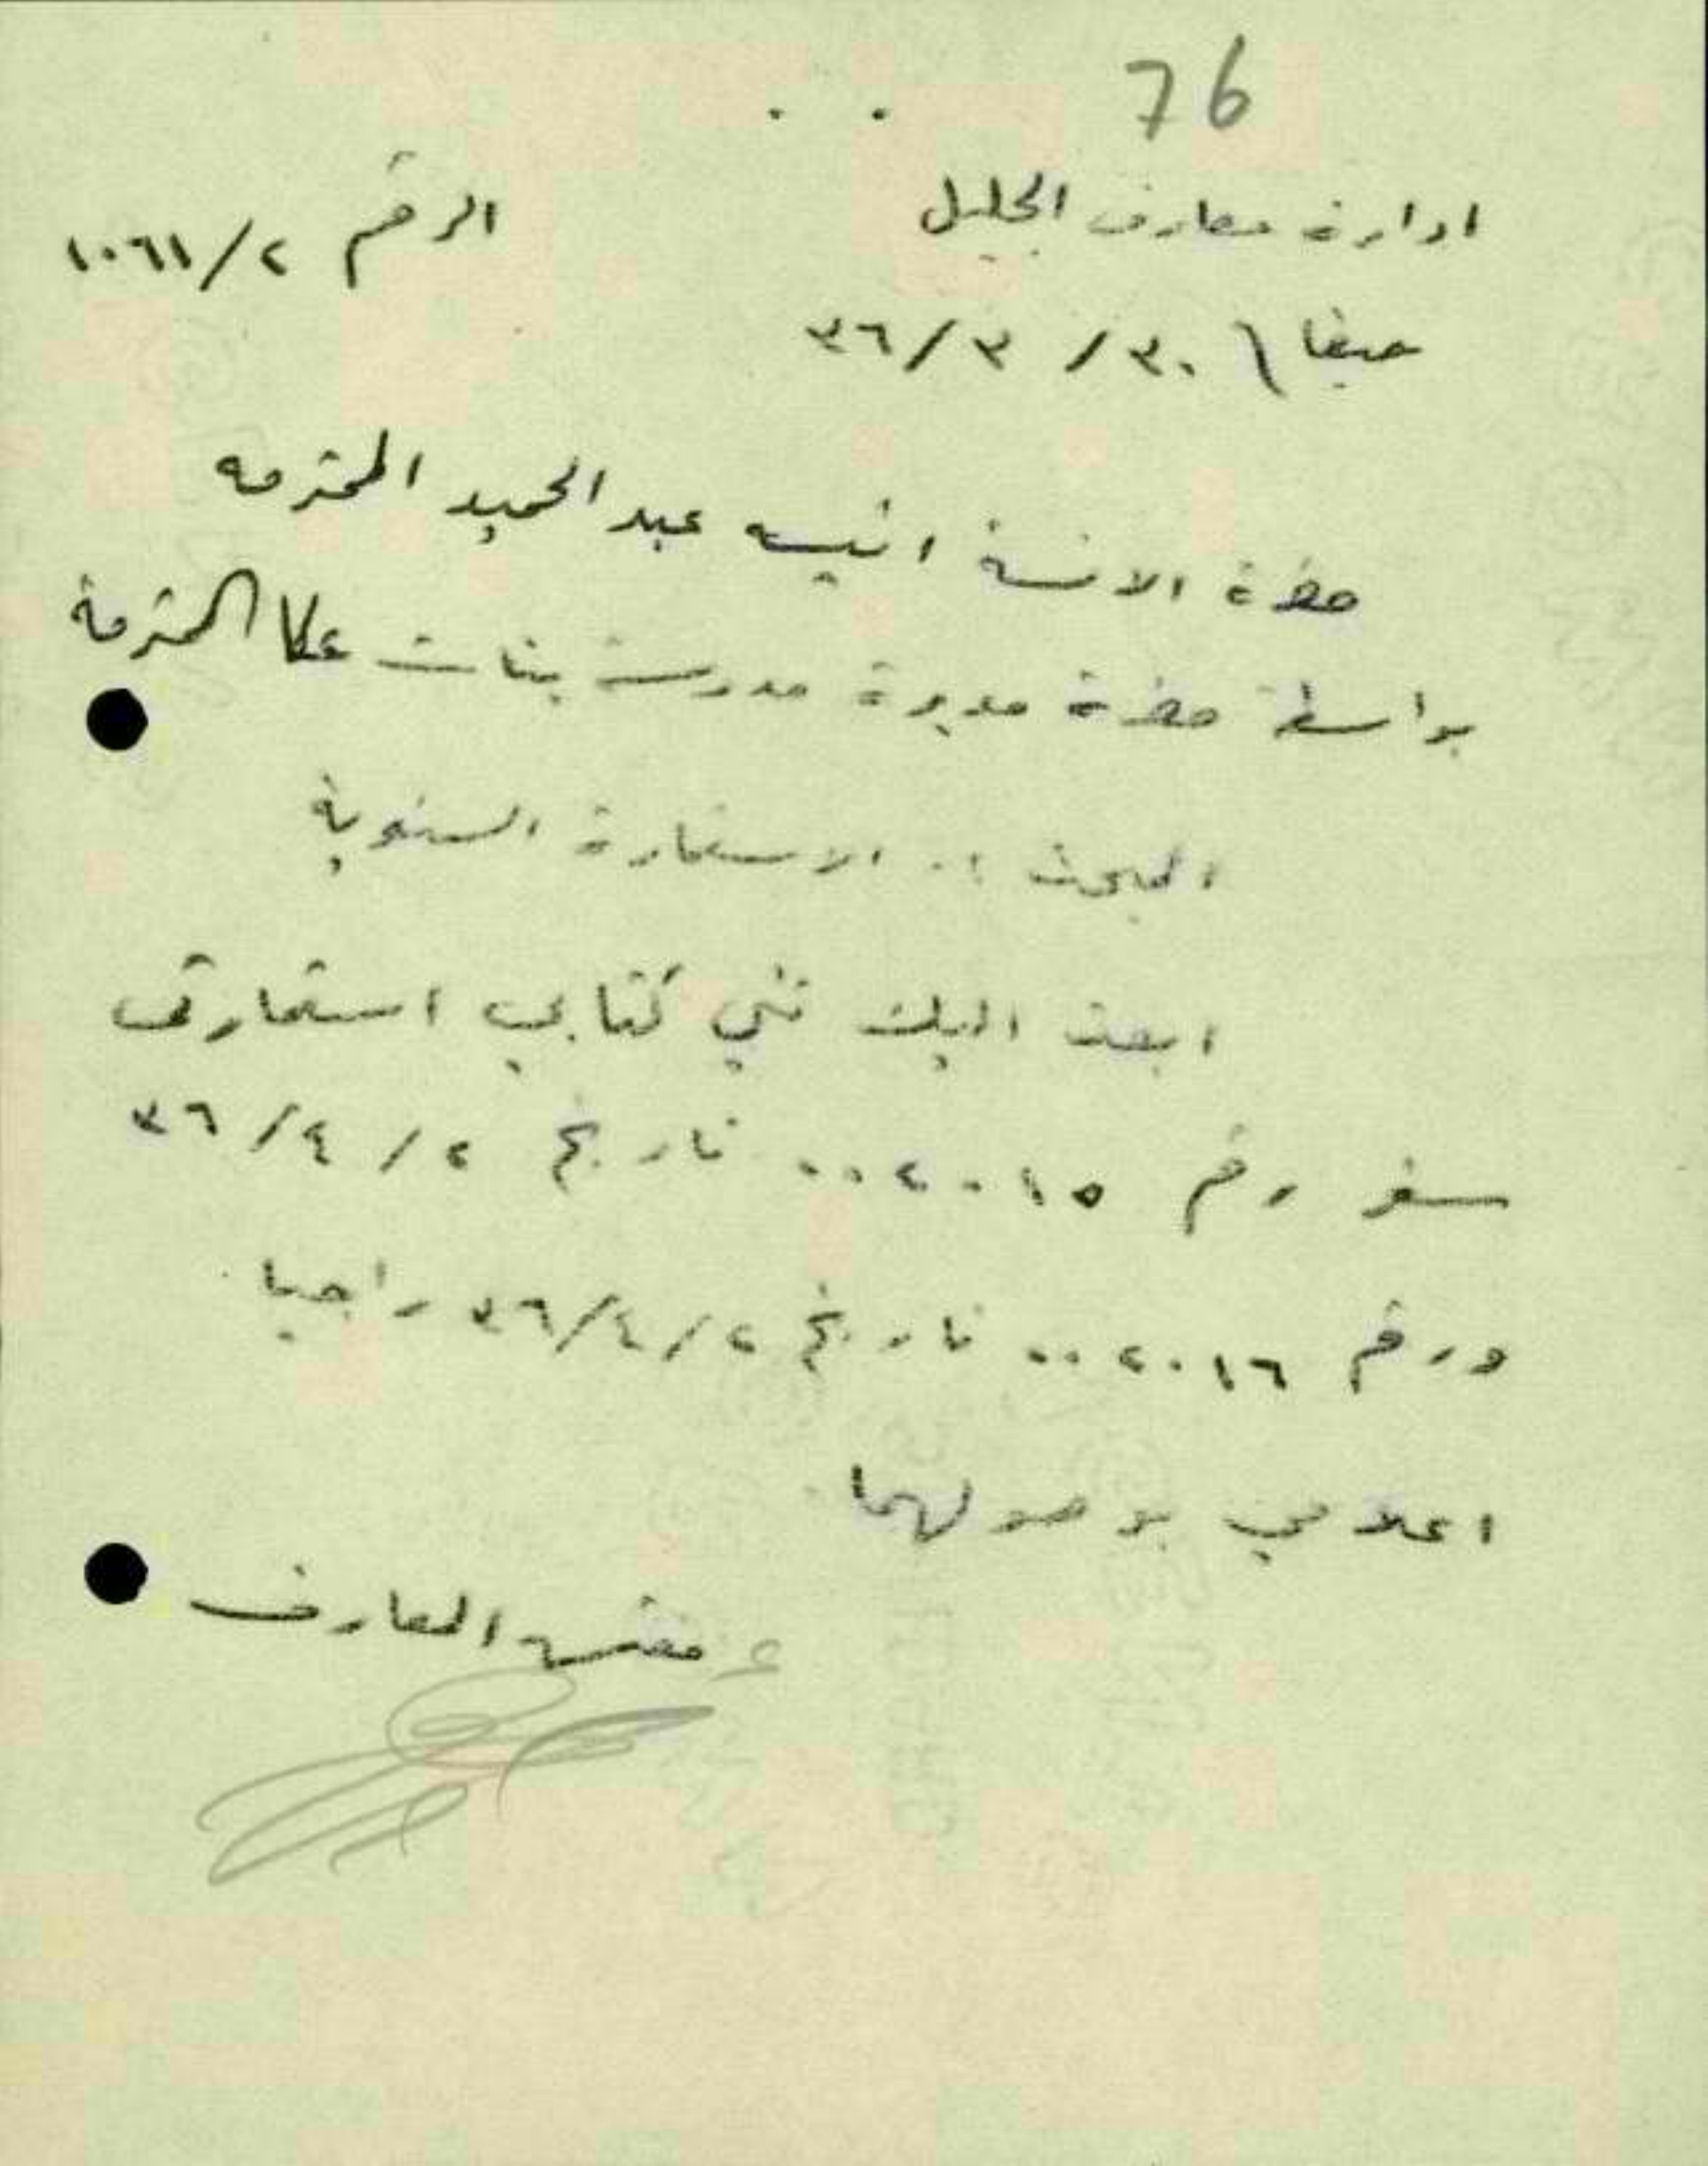 76
ادارة معارف الجليل
الرقم ١٠٦١/٢
حيفا \ ٣٠/ ٣ /٣٦
حضرة الانسة انيسه عبد الحميد المحترمه
بواسطة حضرة مديرة مدرسة بنات عكا المحترمة
المبحث :- الاستمارة السنوية
ابعث اليك طي كتابي استمارتي
سفر رقم ٠٠٢٠١٥ تاريخ ٢ / ٤ / ٣٦
ورقم ٠٠٢٠١٦ تاريخ ٢ / ٤ / ٣٦ راجيا
اعلامي بوصولهما
مفتش المعارف